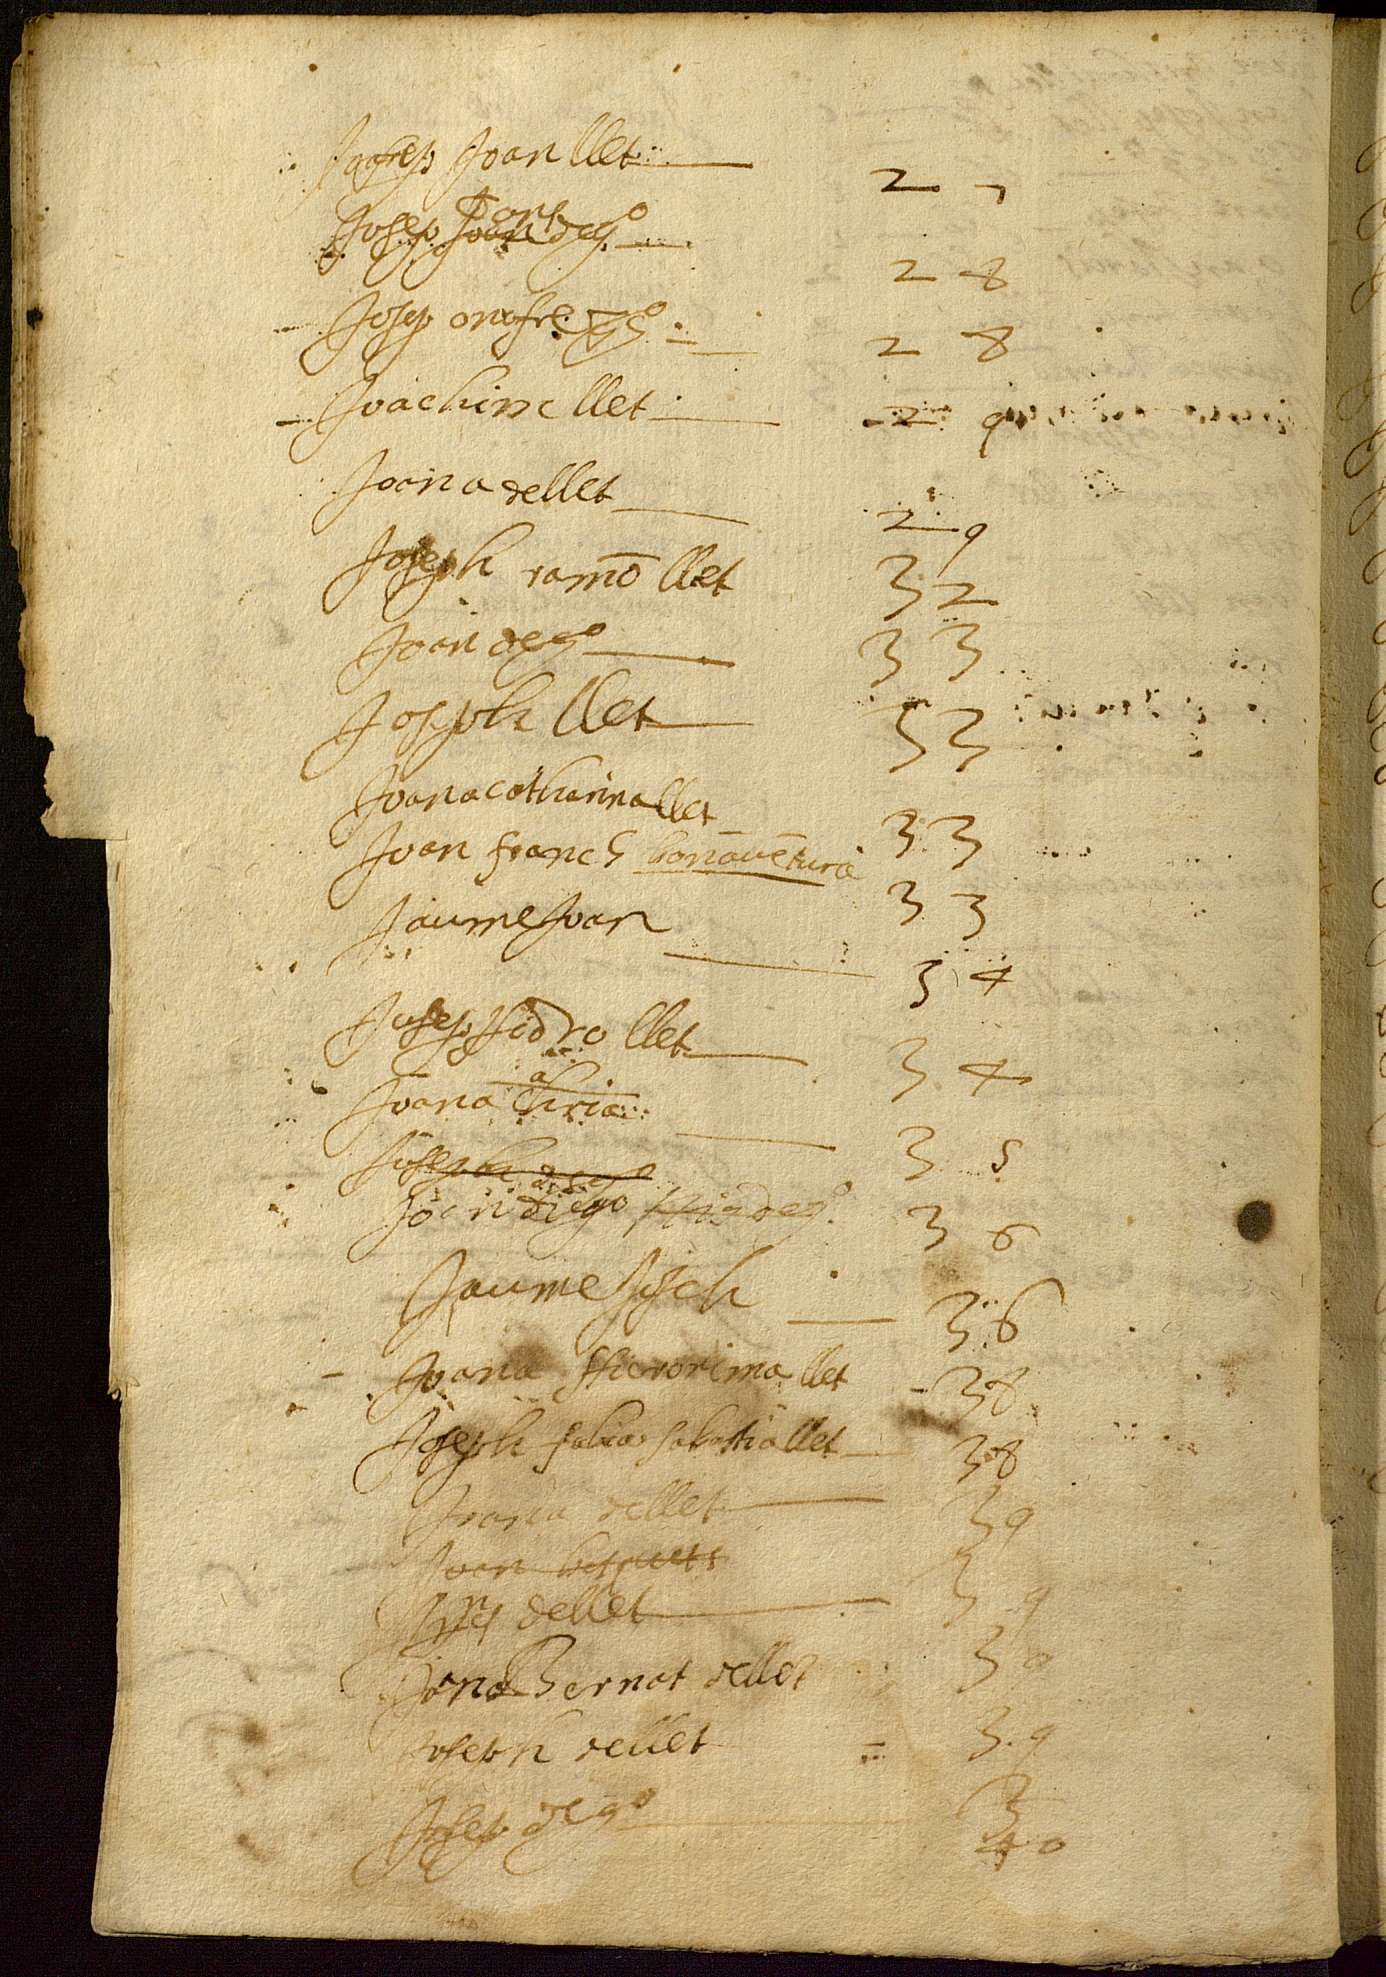 Josep Joan llet 2 7
Josep Joan deg.o 2 8
Josep onofre 2 8
Joachim llet 2 9
Joana dellet 2 9
Joseph ramō llet 3 2
Joan deg.o 3 3
Joseph llet 3 3
Joana catharina llet 3 3
Joan franch bonavētura 3 3
Jaume Joan 3 4
Josep Isidro llet 3 4
Joana 3 5
Joseph
Joan diego deg.o 3 6
Jaume 3 6
Joana Hieronima llet 38
Joseph fabia sabastia llet 38
Joana dellet 39
Joan
dellet 3 9
Jona Bernat dellet 3
Joseph dellet 3.9
Josep deg.o 40